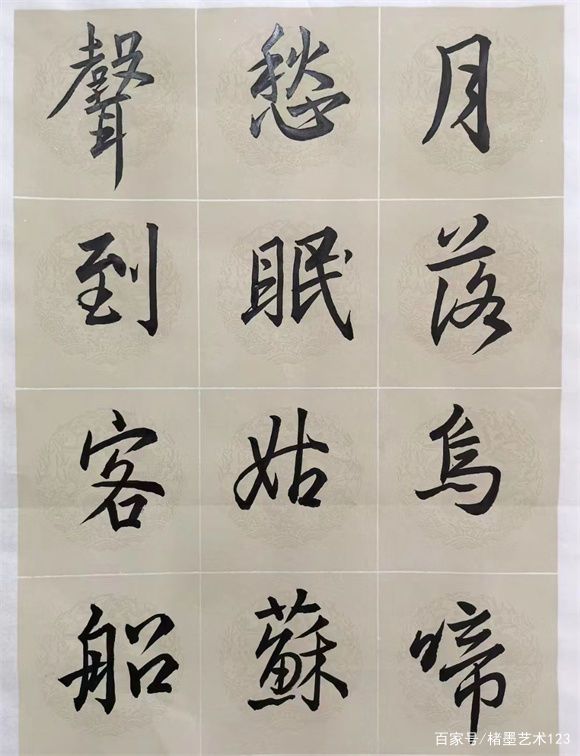 月落烏啼
愁眠姑蘇
聲到客船
百家号/楮墨艺术123